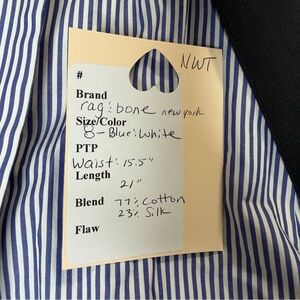 NWT
#
Brand
rag : bone new york
Size/Color
8 - Blue : White
PTP
Waist : 15.5"
Length
21"
Blend 77% Cotton
23% Silk
Flaw